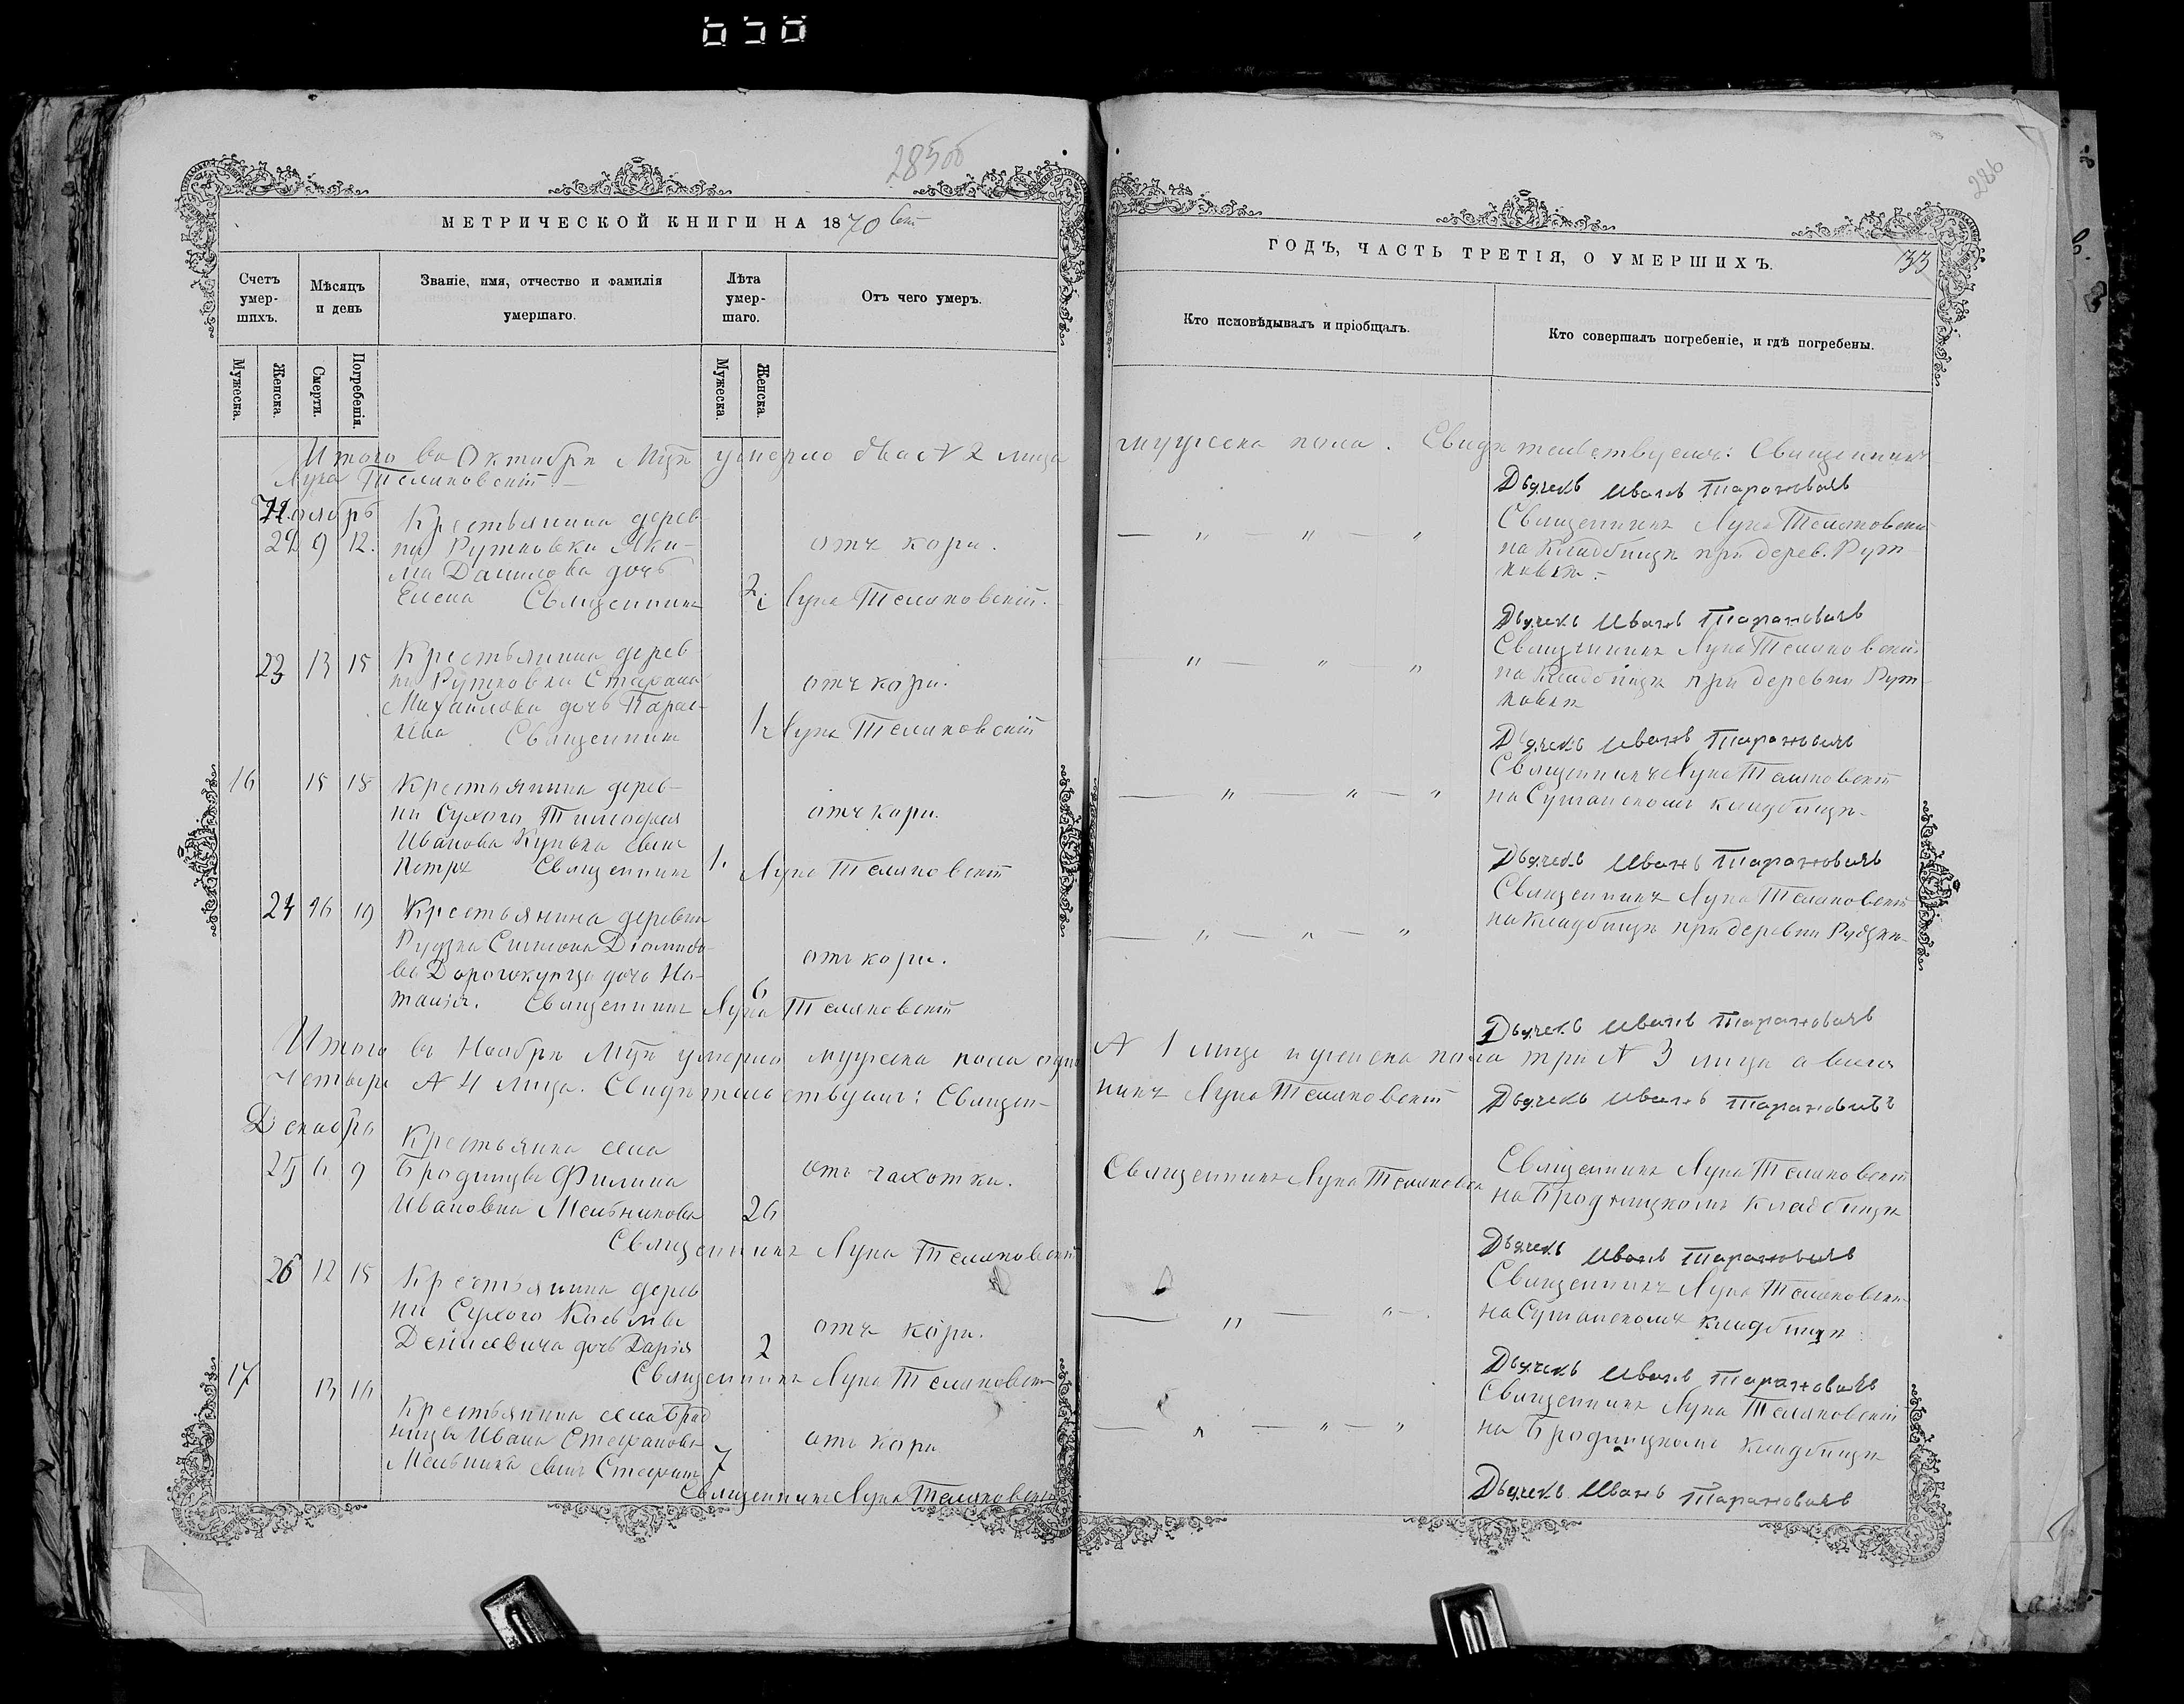 285 об
МЕТРИЧЕСКОЙ КНИГИ НА 1870
Счетъ умер-шихъ.
Мѣсяцъ и день
Званіе, имя, отчество и фамилія умершаго.
Лѣта умер-шаго.
Отъ чего умеръ.
Мужеска.
Женска.
Смерти.
Погребенія.
Мужеска.
Женска.
Итого въ Октябрѣ М-цѣ умерло два № 2 лица
Лука Теляковскій
Ноябрь
22 9 12. Крестьянина дерев-
ни Рутковки Яки-
ма Данилова дочь
Елена 2
отъ кори.
Священникъ Лука Теляковскій.
23 13 15 Крестьянина дерев
ни Рутковки Стефана
Михайлова дочь Парас-
кева 1
отъ кори.
Священникъ Лука Теляковскій
16 15 18 Крестьянина дерев-
ни Сухого Тимофея
Иванова сынъ
Петръ 1.
отъ кори.
Священникъ Лука Теляковскій
24 16 19 Крестьянина деревни
Рудзка Симеона
Дорогокупца дочь На-
талія. 6
отъ кори.
Священникъ Лука Теляковскій
Итого въ Ноябрѣ М-цѣ умерло мужеска пола одно
четыре № 4 лица. Свидѣтельствуемъ: Священ-
Декабрь
25 6 9 Крестьянка села
Бродницы
Ивановна Мельникова 26
отъ чахотки.
Священникъ Лука Теляковскій
26 12 15 Крестьянина дерев
ни Сухого Козьмы
Денисевича дочь Дарія 2
отъ кори.
Священникъ Лука Теляковскій
17 13 16
Крестьянина села Брод
ницы Ивана Стефанова
Мельника сынъ Стефанъ 7
отъ кори
Священникъ Лука Теляковскій
286
33
ГОДЪ, ЧАСТЬ ТРЕТІЯ, О УМЕРШИХЪ.
Кто исповѣдывалъ и пріобщалъ.
Кто совершалъ погребеніе, и гдѣ погребены.
мужеска пола. Свидѣтельствуемъ: Священникъ
Дьячекъ Иванъ Тарановичъ
— " — " — "
Священникъ Лука Теляковскій
на Кладбищѣ при дерев. Рут-
ковкѣ.
Дьячекъ Иванъ Тарановичъ
— " — " — "
Священникъ Лука Теляковскій
на Кладбищѣ при деревни Рут-
ковкѣ
Дьячекъ Иванъ Тарановичъ
— " — " — "
Священникъ Лука Теляковскій
на кладбищѣ.
Дьячекъ Иванъ Тарановичъ
— " — " — "
Священникъ Лука Теляковскій
на Кладбищѣ при деревни Рудзкѣ.
Дьячекъ Иванъ Тарановичъ
№ 1 лице и женска пола три № 3 лица а всего
никъ Лука Теляковскій
Дьячекъ Иванъ Тарановичъ
Священникъ Лука Теляковск
Священникъ Лука Теляковскій
на Бродницкомъ Кладбищѣ
Дьячекъ Иванъ Тарановичъ
— " — " —
Священникъ Лука Теляковскій
на кладбищѣ
Дьячекъ Иванъ Тарановичъ
— " — " — "
Священникъ Лука Теляковскій
на Бродницкомъ кладбищѣ
Дьячекъ Иванъ Тарановичъ